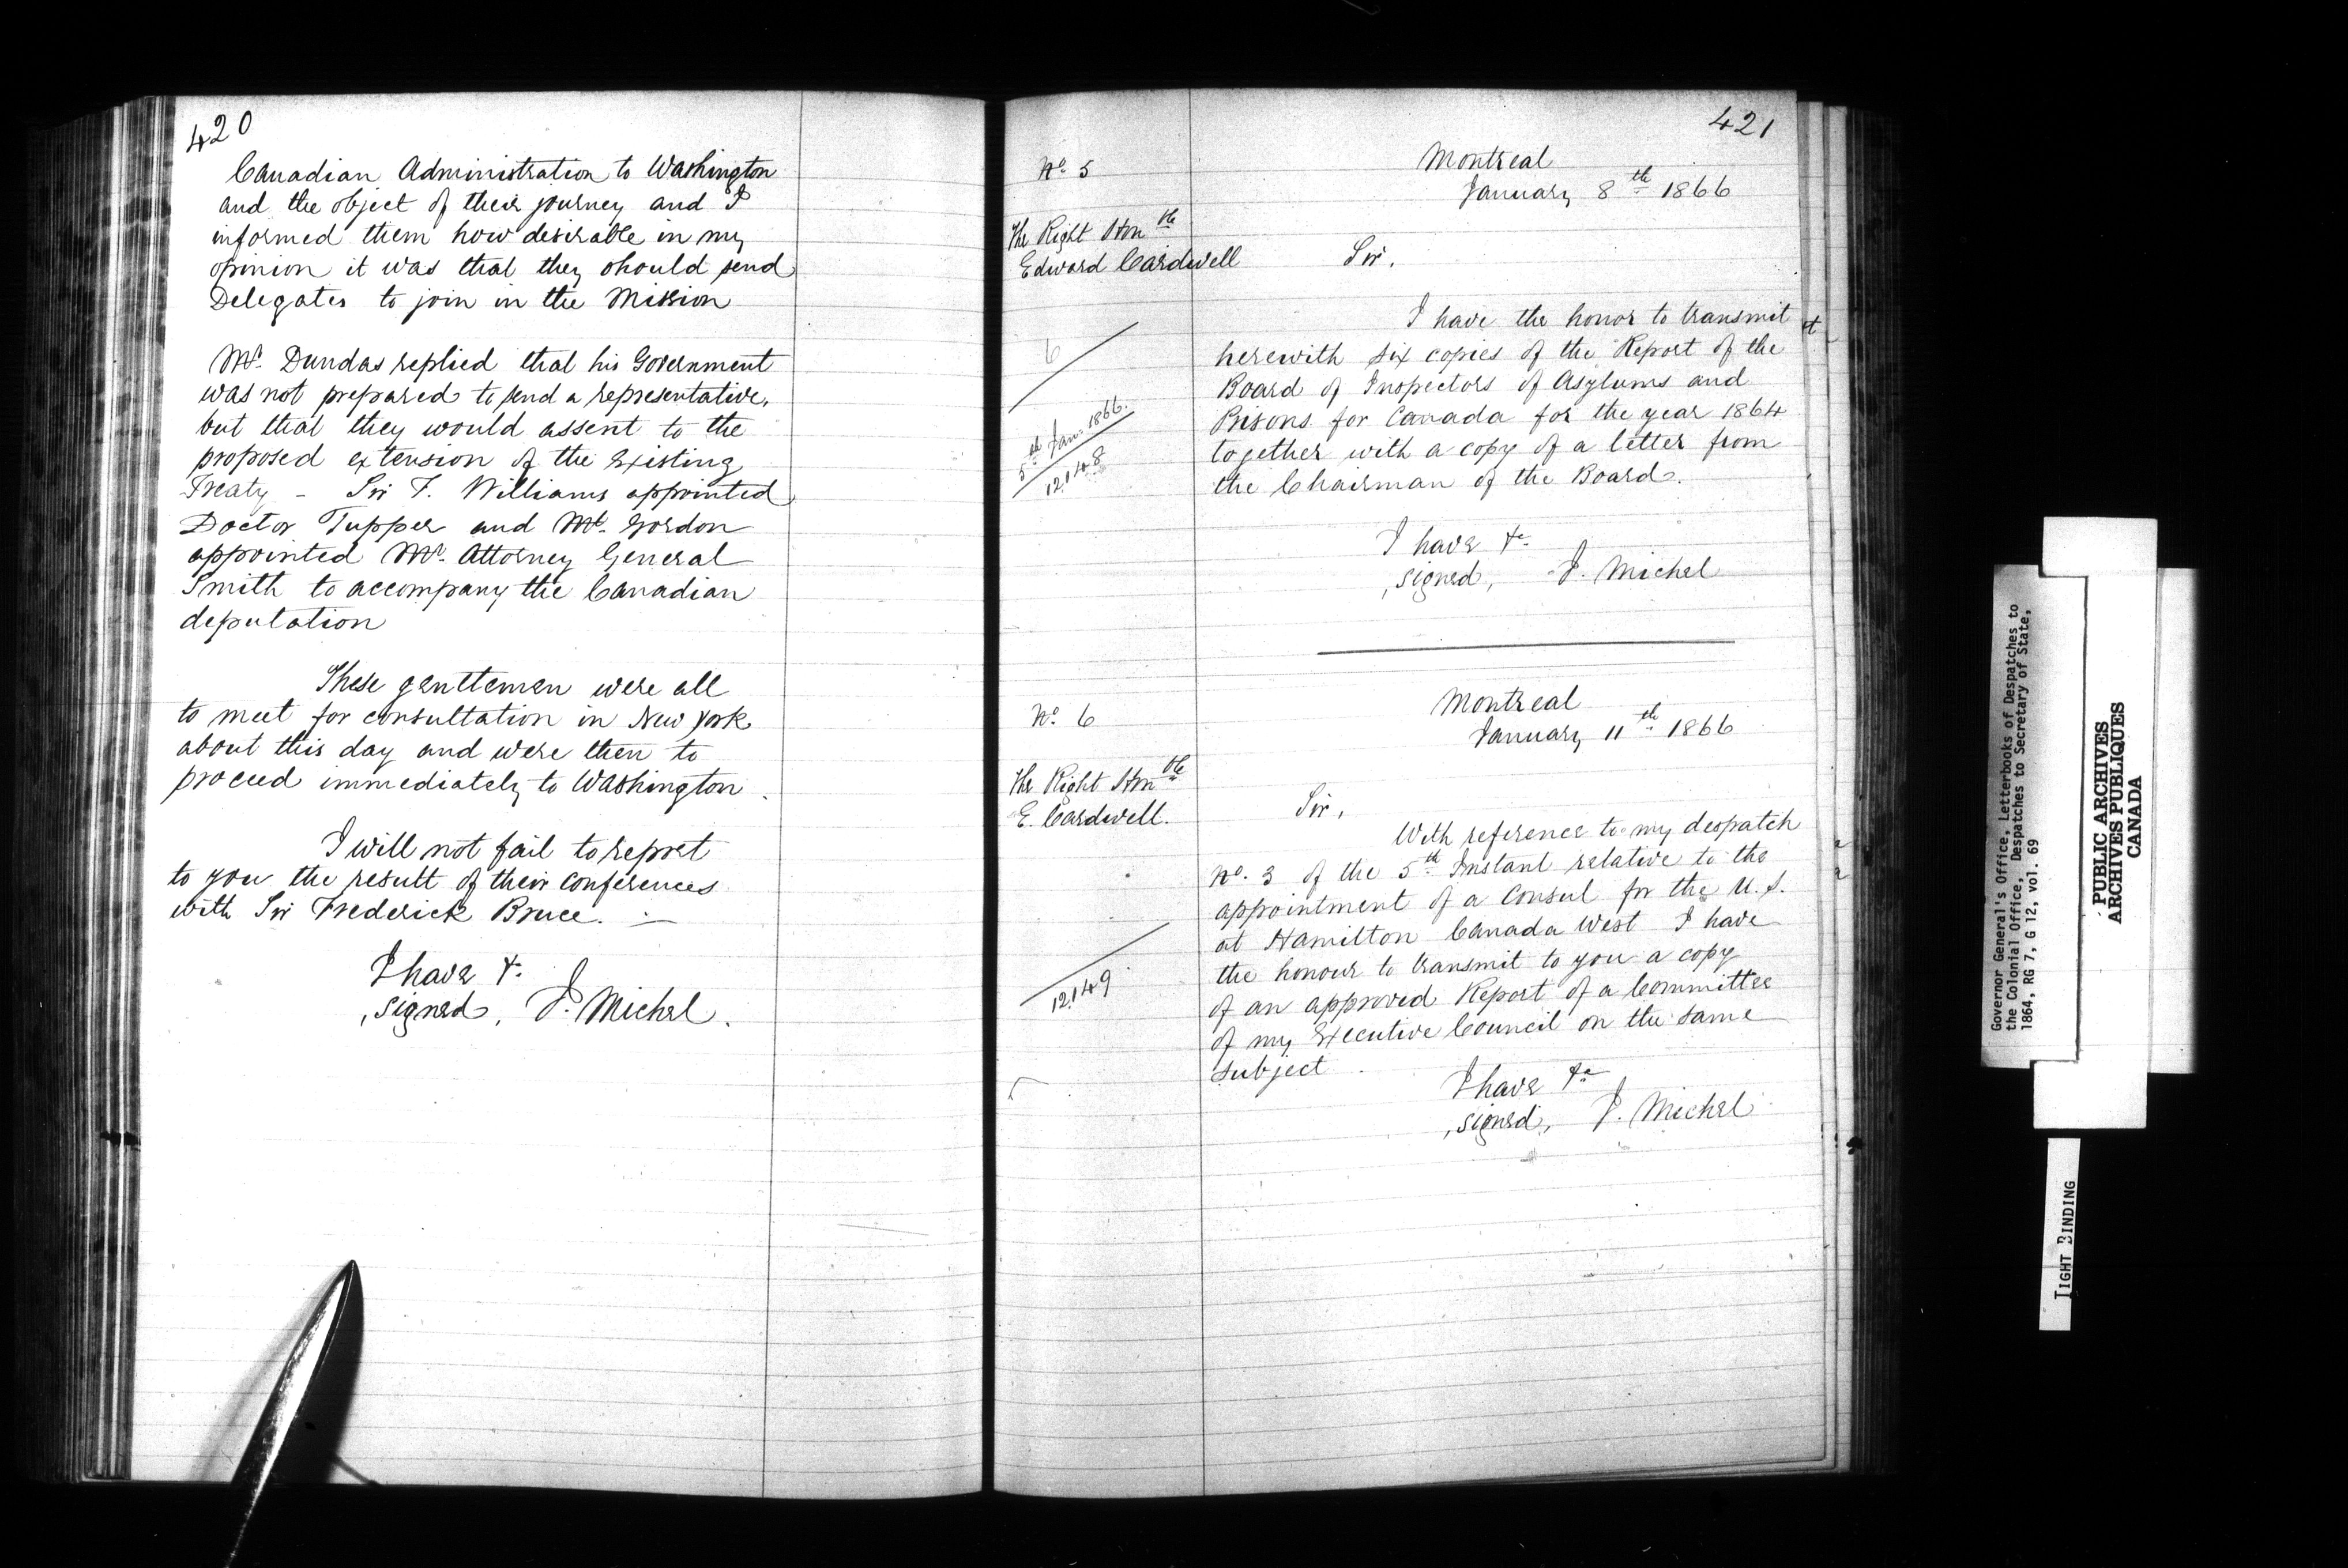 420
Canadian Administration to Washington
and the object of their journey and I
informed them how desirable in my
opinion it was that they should send
Delegates to join in the Mission
Mr. Dundas replied that his Government
was not prepared to send a representative,
but that they would assent to the
proposed extension of the Existing
Treaty - Sir F. Williams appointed
Doctor Tupper and Mr. Gordon
appointed Mr. Attorney General
Smith to accompany the Canadian
deputation
These gentlemen were all
to meet for consultation in New York
about this day and were then to
proceed immediately to Washington.
I will not fail to report
to you the result of their conferences
with Sir Frederick Bruce. —
I have &c
signed, J. Michel.
421
No 5
Montreal
January 8th 1866
The Right Honble
Edward Cardwell
Sir,
I have the honor to transmit
herewith six copies of the Report of the
Board of Inspectors of Asylums and
Prisons for Canada for the year 1864
together with a copy of a letter from
the Chairman of the Board.
6
5th Jan. 1866.
12148
I have &c
signed, J. Michel
No. 6
Montreal
January 11th 1866
The Right Honble
E. Cardwell.
Sir,
With reference to my despatch
No. 3 of the 5th Instant relative to the
appointment of a Consul for the U.S.
at Hamilton Canada West I have
the honour to transmit to you a copy
of an approved Report of a Committee
of my Executive Council on the same
subject.
12149
I have &c
signed, J. Michel
Governor General's Office, Letterbooks of Despatches to
the Colonial Office, Despatches to Secretary of State,
1864, RG 7, G 12, vol. 69
PUBLIC ARCHIVES
ARCHIVES PUBLIQUES
CANADA
TIGHT BINDING